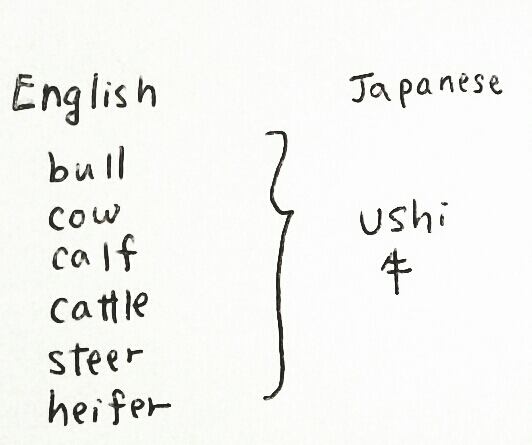 English
Japanese
bull
cow
calf
cattle
steer
heifer
ushi
牛